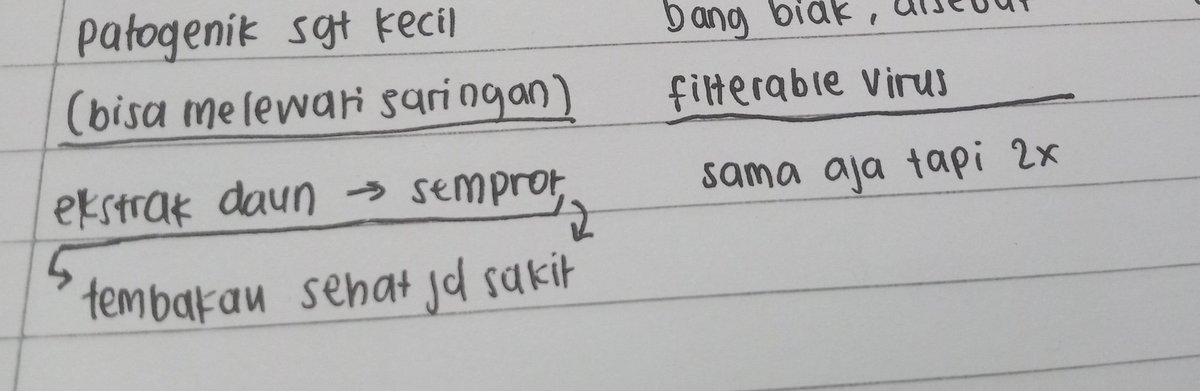 patogenik sgt kecil
(bisa melewati saringan)
ekstrak daun → semprot,
tembakau sehat jd sakit
bang biak, disebut
filterable virus
sama aja tapi 2x